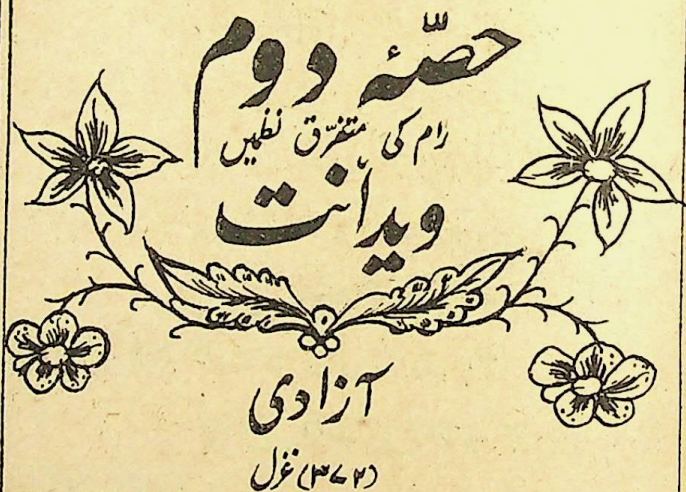 حصّۂ دوم
رام کی متفرّق نظمیں
ویدانت
آزادی
(۳۷۲) غزل